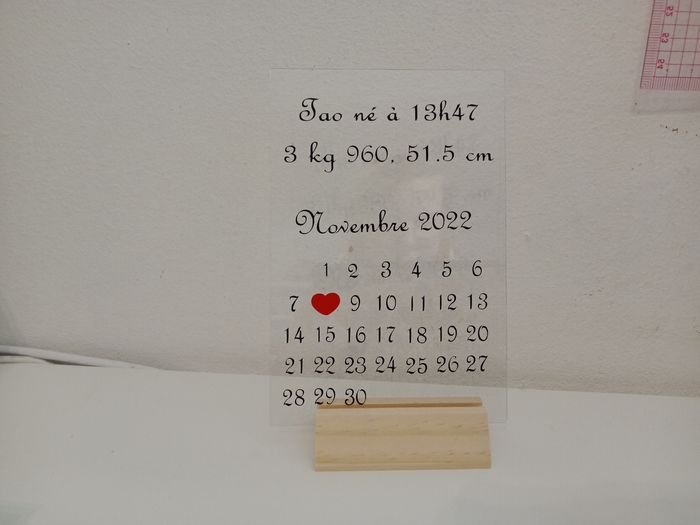 Tao né à 13h47
3 kg 960, 51.5 cm
Novembre 2022
1 2 3 4 5 6
7 9 10 11 12 13
14 15 16 17 18 19 20
21 22 23 24 25 26 27
28 29 30
52
53
54